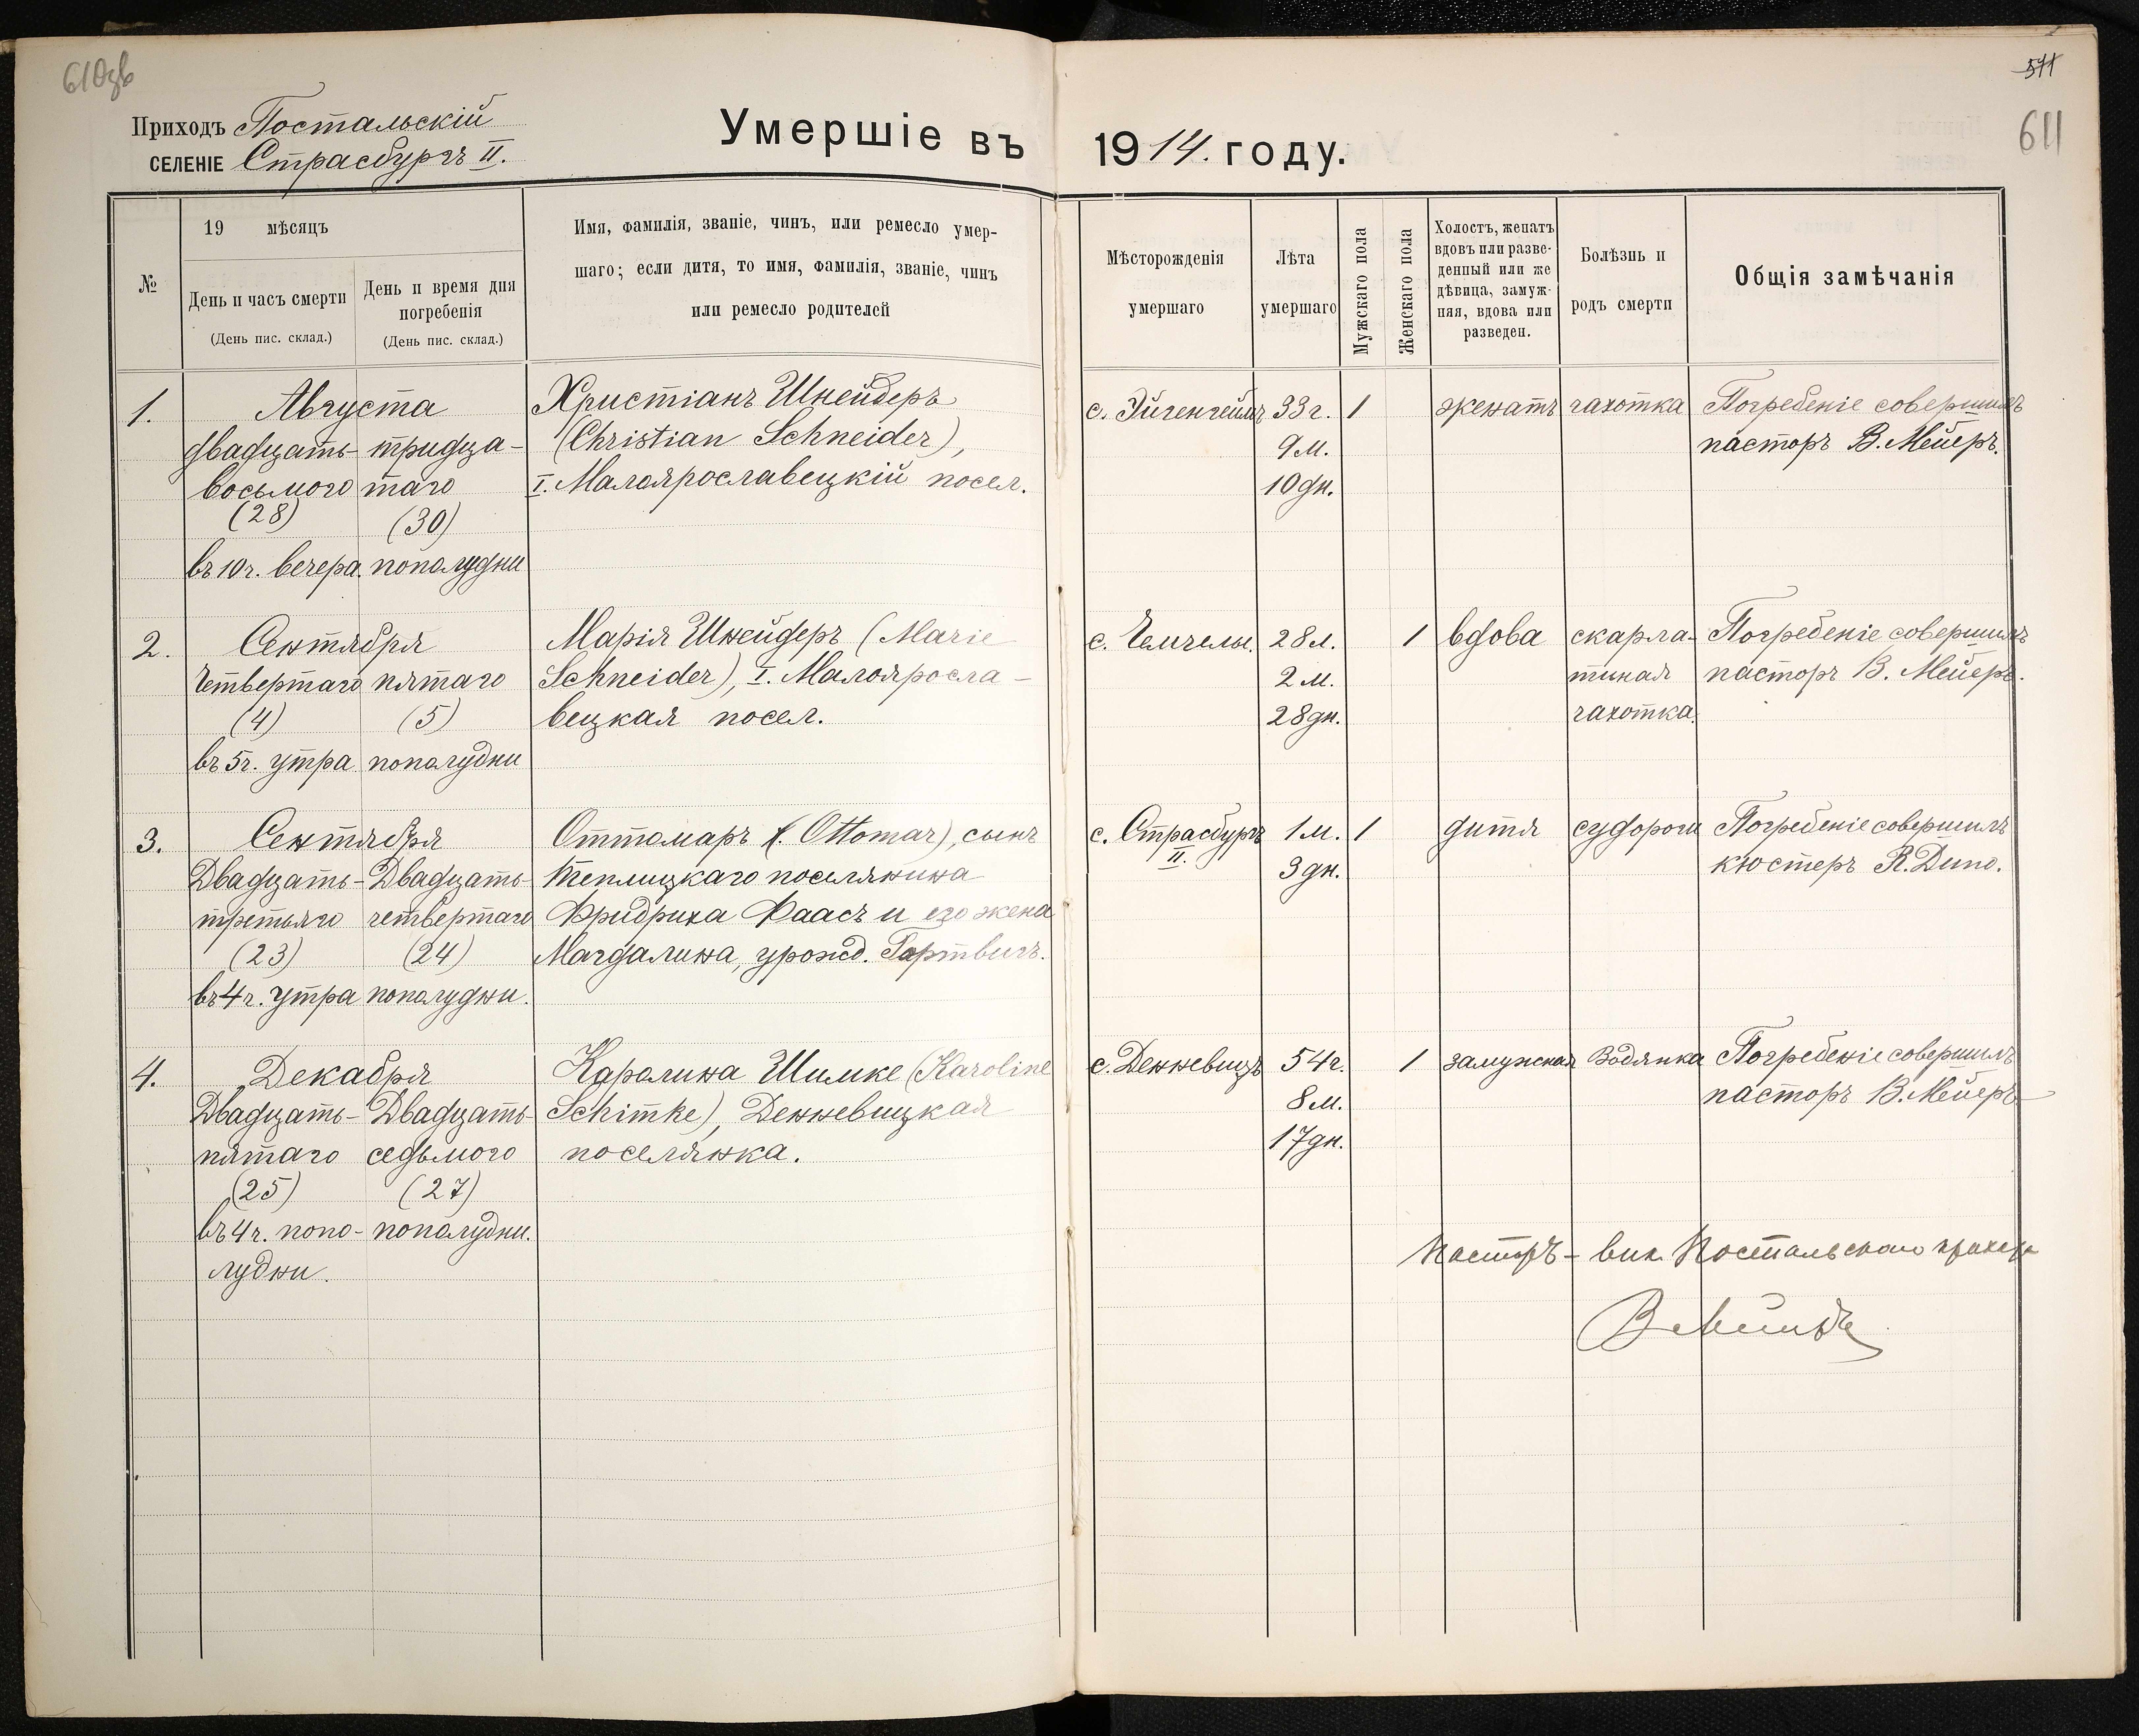 610зв
511
611
Приходъ Постальскій
СЕЛЕНІЕ Страсбургъ II.
Умершіе въ 1914. году.
№
19 мѣсяцъ
День и часъ смерти
(День пис. склад.)
День и время дня
погребенія
(День пис. склад.)
Имя, фамилія, званіе, чинъ, или ремесло умер-
шаго; если дитя, то имя, фамилія, званіе, чинъ
или ремесло родителей
Мѣсторожденія
умершаго
Лѣта
умершаго
Мужскаго пола
Женскаго пола
Холостъ, женатъ
вдовъ или разве-
денный или же
дѣвица, замуж-
няя, вдова или
разведен.
Болѣзнь и
родъ смерти
Общія замѣчанія
1. Августа Христіанъ Шнейдеръ с. Эйгенгеймъ 33 г. 1 женатъ чахотка Погребеніе совершилъ
двадцать- тридца- (Christian Schneider), 9 м. пасторъ В. Мейеръ.
восьмого таго I. Малоярославецкій посел. 10 дн.
(28) (30)
въ 10 ч. вечера. пополудни
2. Сентября Марія Шнейдеръ (Marie с. Чемчелы. 28 л. 1 вдова скарла- Погребеніе совершилъ
Четвертаго пятаго Schneider), I. Малояросла- 2 м. тиная пасторъ В. Мейеръ.
(4) (5) вецкая посел. 28 дн. чахотка.
въ 5 ч. утра пополудни
3. Сентября Оттомаръ (Ottomar), сынъ с. Страсбургъ 1 м. 1 дитя судороги Погребеніе совершилъ
Двадцать- Двадцать- Теплицкаго поселянина II. 3 дн. кюстеръ Я. Дино.
третьяго четвертаго Фридриха Фаасъ и его жена
(23) (24) Магдалина, урожд. Гартвигъ.
въ 4 ч. утра пополудни.
4. Декабря Каролина Шимке (Karoline с. Денневицъ 54 г. 1 замужная Водянка Погребеніе совершилъ
Двадцать- Двадцать Schimke), Денневицкая 8 м. пасторъ В. Мейеръ
пятаго седьмого поселянка. 17 дн.
(25) (27)
въ 4 ч. попо- пополудни.
лудни.
Пасторъ- вик. Постальскаго прихода
В Мейеръ